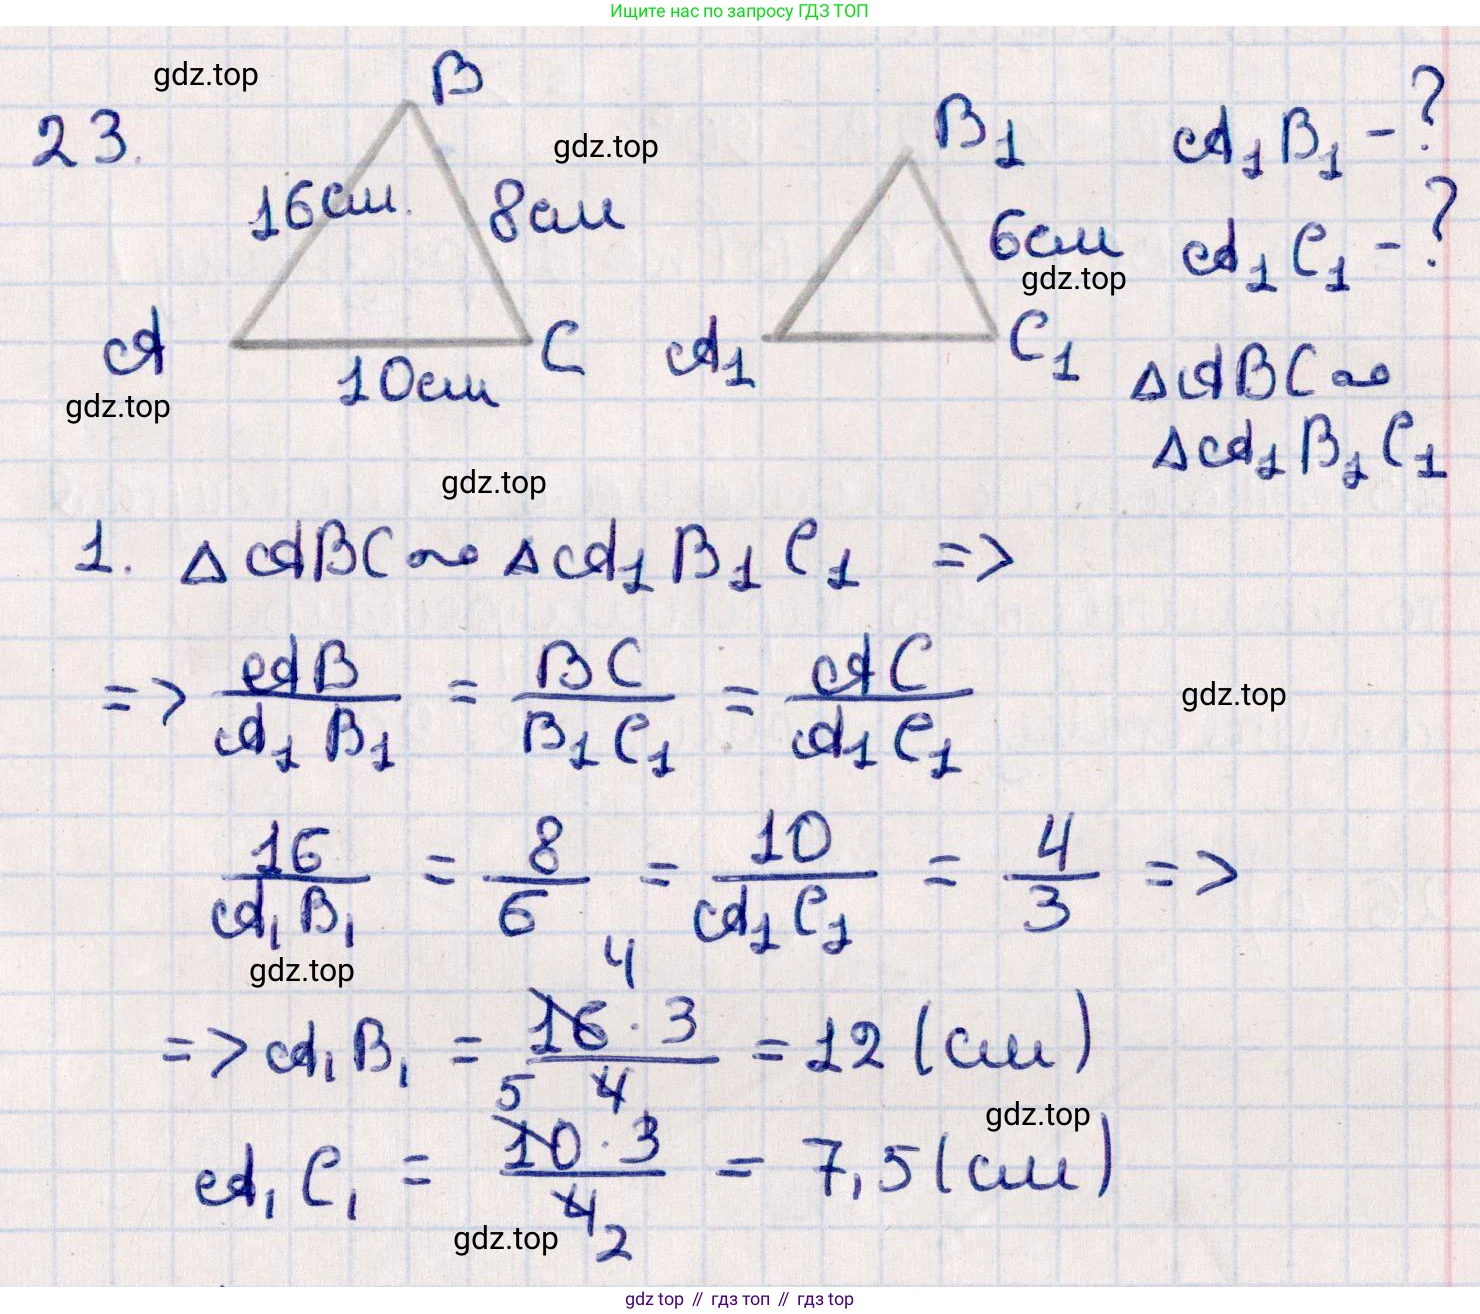 Ищите нас по запросу ГДЗ ТОП
gdz.top
23.
B
16см.
8см
A
C
10см
gdz.top
gdz.top
B₁
6см
gdz.top
A₁
C₁
A₁B₁ - ?
A₁C₁ - ?
△ABC ∾
△A₁B₁C₁
gdz.top
1. △ABC ∾ △A₁B₁C₁ =>
=> AB/A₁B₁ = BC/B₁C₁ = AC/A₁C₁
gdz.top
16/A₁B₁ = 8/6 = 10/A₁C₁ = 4/3 =>
gdz.top
4
=> A₁B₁ = 16·3/4 = 12 (см)
gdz.top
5
A₁C₁ = 10·3/4 = 7,5 (см)
2
gdz.top
gdz top // гдз топ // гдз top